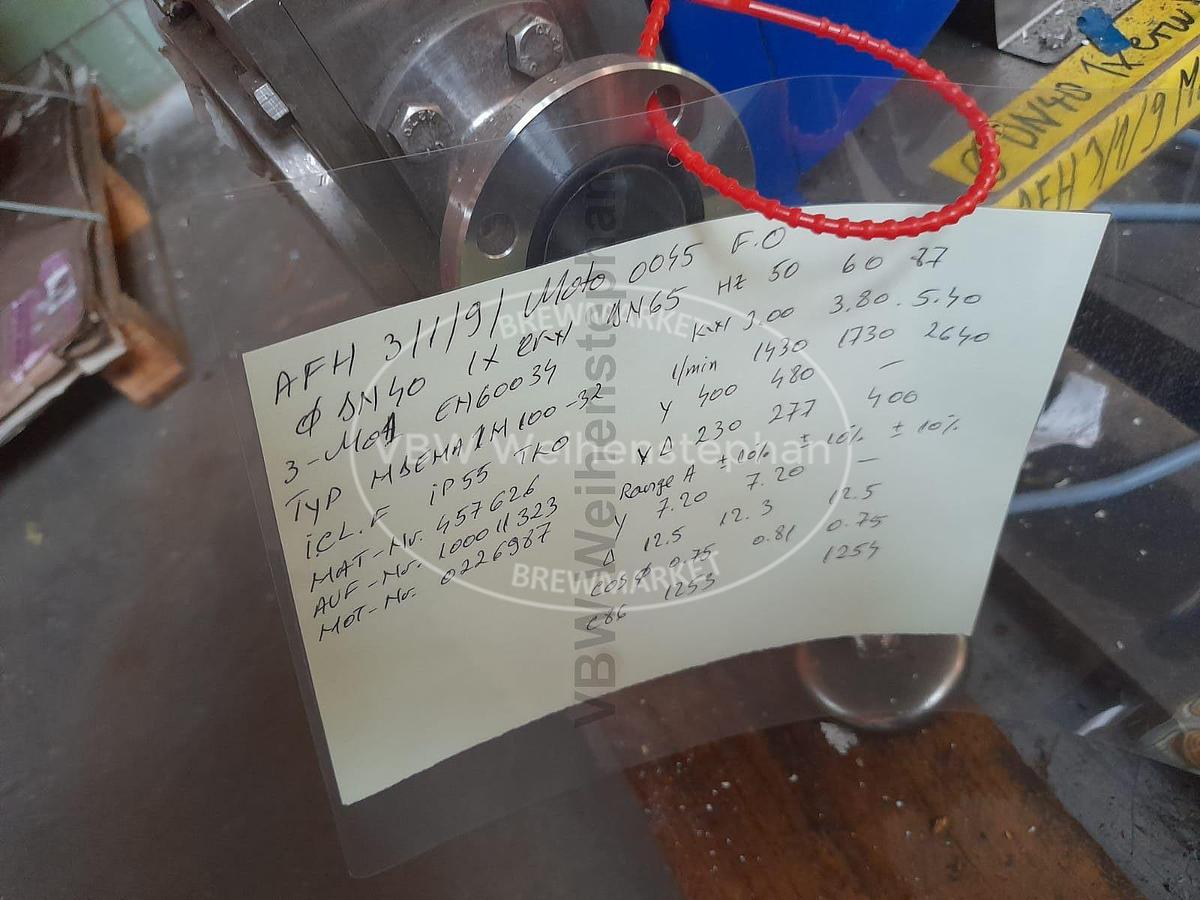 ØDN40 1x erw
AFH 3/1/9 M
AFH 3/1/9/ Moto 0045 F.O
Ø DN40 1x erw DN65
3-Mot EN60034
TYP MDEMA1M100-32
iCL.F iP55 TKO
MAT-Nr. 457626
AUF-Nr. 100011323
MOT-Nr. 0226987
HZ 50 60 87
kw 3.00 3.80. 5.40
1/min 1430 1730 2640
Y 400 480 –
Y Δ 230 277 400
Range A ±10% ±10% ±10%
Y 7.20 7.20 –
Δ 12.5 12.3 12.5
cos φ 0.75 0.81 0.75
c86 1253 1254
BREWMARKET
VBW Weihenstephan
BREWMARKET
VBW Weihenstephan